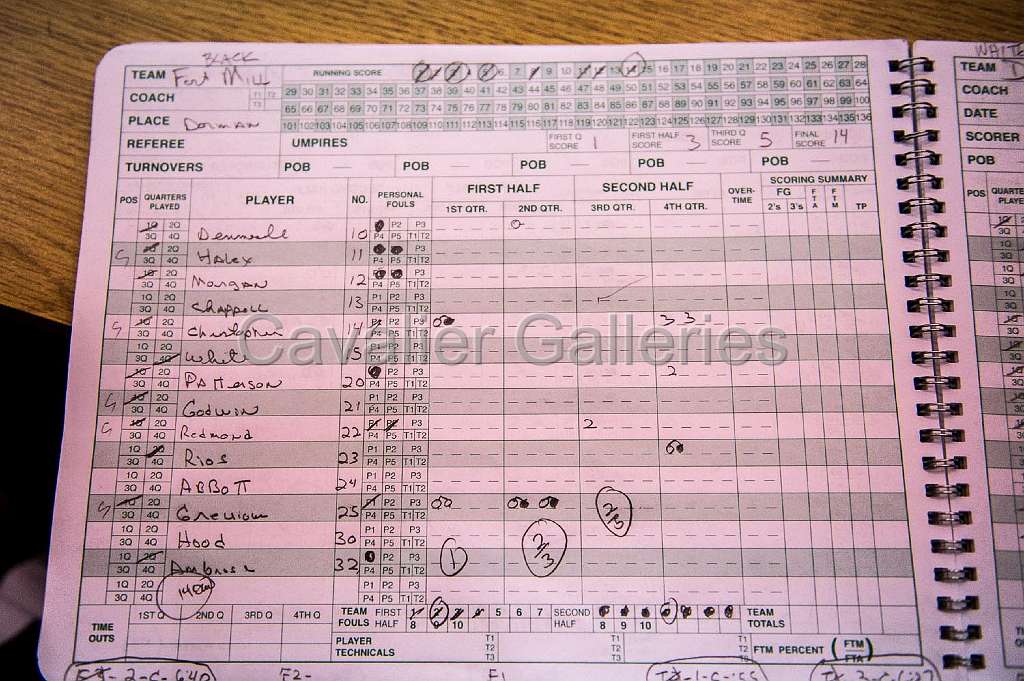 BLACK
TEAM Fort Mill RUNNING SCORE 6 7 9 10 13 15 16 17 18 19 20 21 22 23 24 25 26 27 28
COACH T1 T2 T3 29 30 31 32 33 34 35 36 37 38 39 40 41 42 43 44 45 46 47 48 49 50 51 52 53 54 55 56 57 58 59 60 61 62 63 64
65 66 67 68 69 70 71 72 73 74 75 76 77 78 79 80 81 82 83 84 85 86 87 88 89 90 91 92 93 94 95 96 97 98 99 100
PLACE Dorman 101 102 103 104 105 106 107 108 109 110 111 112 113 114 115 116 117 118 119 120 121 122 123 124 125 126 127 128 129 130 131 132 133 134 135 136
REFEREE UMPIRES FIRST Q SCORE 1 FIRST HALF SCORE 3 THIRD Q SCORE 5 FINAL SCORE 14
TURNOVERS POB POB POB POB POB
POS QUARTERS PLAYED PLAYER NO. PERSONAL FOULS FIRST HALF SECOND HALF OVER-TIME SCORING SUMMARY
1ST QTR. 2ND QTR. 3RD QTR. 4TH QTR. FG 2's 3's FTA FTM TP
1Q 2Q 3Q 4Q 10 P2 P3 P4 P5 T1 T2
G 1Q 2Q 3Q 4Q Haley 11 P3 P4 P5 T1 T2
1Q 2Q 3Q 4Q Morgan 12 P3 P4 P5 T1 T2
1Q 2Q 3Q 4Q Chappell 13 P1 P2 P3 P4 P5 T1 T2
G 1Q 2Q 3Q 4Q 14 P1 P2 P3 P4 P5 T1 T2 3 3
1Q 2Q 3Q 4Q White 15 P1 P2 P3 P4 P5 T1 T2
1Q 2Q 3Q 4Q Patterson 20 P2 P3 P4 P5 T1 T2 2
G 1Q 2Q 3Q 4Q Godwin 21 P1 P2 P3 P4 P5 T1 T2
G 1Q 2Q 3Q 4Q Redmond 22 P1 P2 P3 P4 P5 T1 T2 2
1Q 2Q 3Q 4Q Rios 23 P1 P2 P3 P4 P5 T1 T2
1Q 2Q 3Q 4Q ABBOTT 24 P1 P2 P3 P4 P5 T1 T2
G 1Q 2Q 3Q 4Q 25 P1 P2 P3 P4 P5 T1 T2
1Q 2Q 3Q 4Q Hood 30 P1 P2 P3 P4 P5 T1 T2 1 2/3 2/5
1Q 2Q 3Q 4Q Ambrose 32 P2 P3 P4 P5 T1 T2
1Q 2Q 3Q 4Q P1 P2 P3 P4 P5 T1 T2
TIME OUTS 1ST Q 2ND Q 3RD Q 4TH Q TEAM FOULS FIRST HALF 5 6 7 8 9 10 SECOND HALF 8 9 10 TEAM TOTALS
PLAYER TECHNICALS T1 T2 T3 T1 T2 T3 T1 T2 T3 FTM PERCENT (FTM/FTA)
F2- F1
WHITE
TEAM
COACH
DATE
SCORER
POB
POS QUARTERS PLAYED
Cavalier Galleries